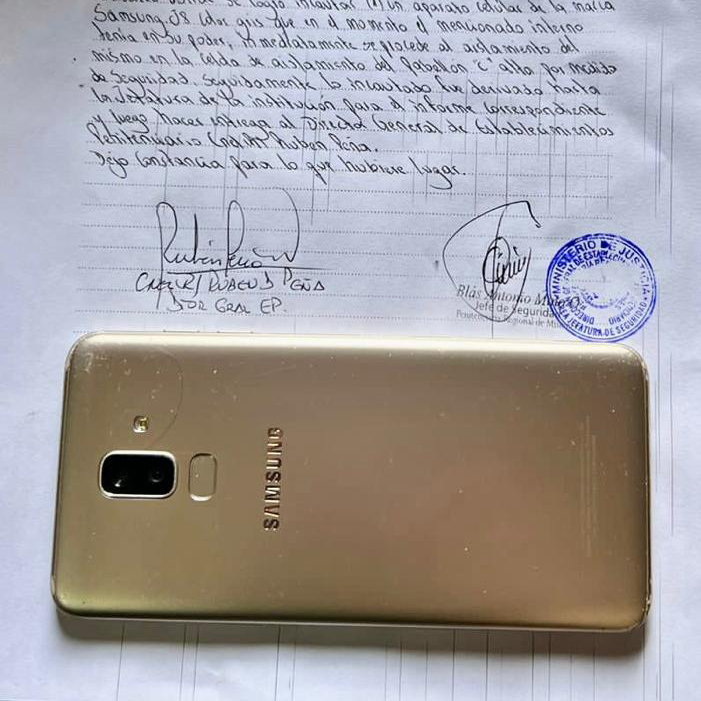 se logó incautar (1) un aparato celular de la marca
Samsung J8 color gris que en el momento el mencionado interno
tenia en su poder, inmediatamente se procede al aislamiento del
mismo en la celda de aislamiento del Pabellón "C" alta por medida
de seguridad. Seguidamente lo incautado fue derivado hasta
la Jefatura de la institución para el informe correspondiente
y luego hacer entrega al Director General de Establecimientos
Penitenciario Ruben Peña.
Dejo Constancia para lo que hubiere lugar.
Rubén Peña
RUBEN D PEÑA
DOR GRAL EP.
Blas Antonio
Jefe de Seguridad
Penitenciaría Regional de
MINISTERIO DE JUSTICIA
JEFATURA DE SEGURIDAD
SAMSUNG